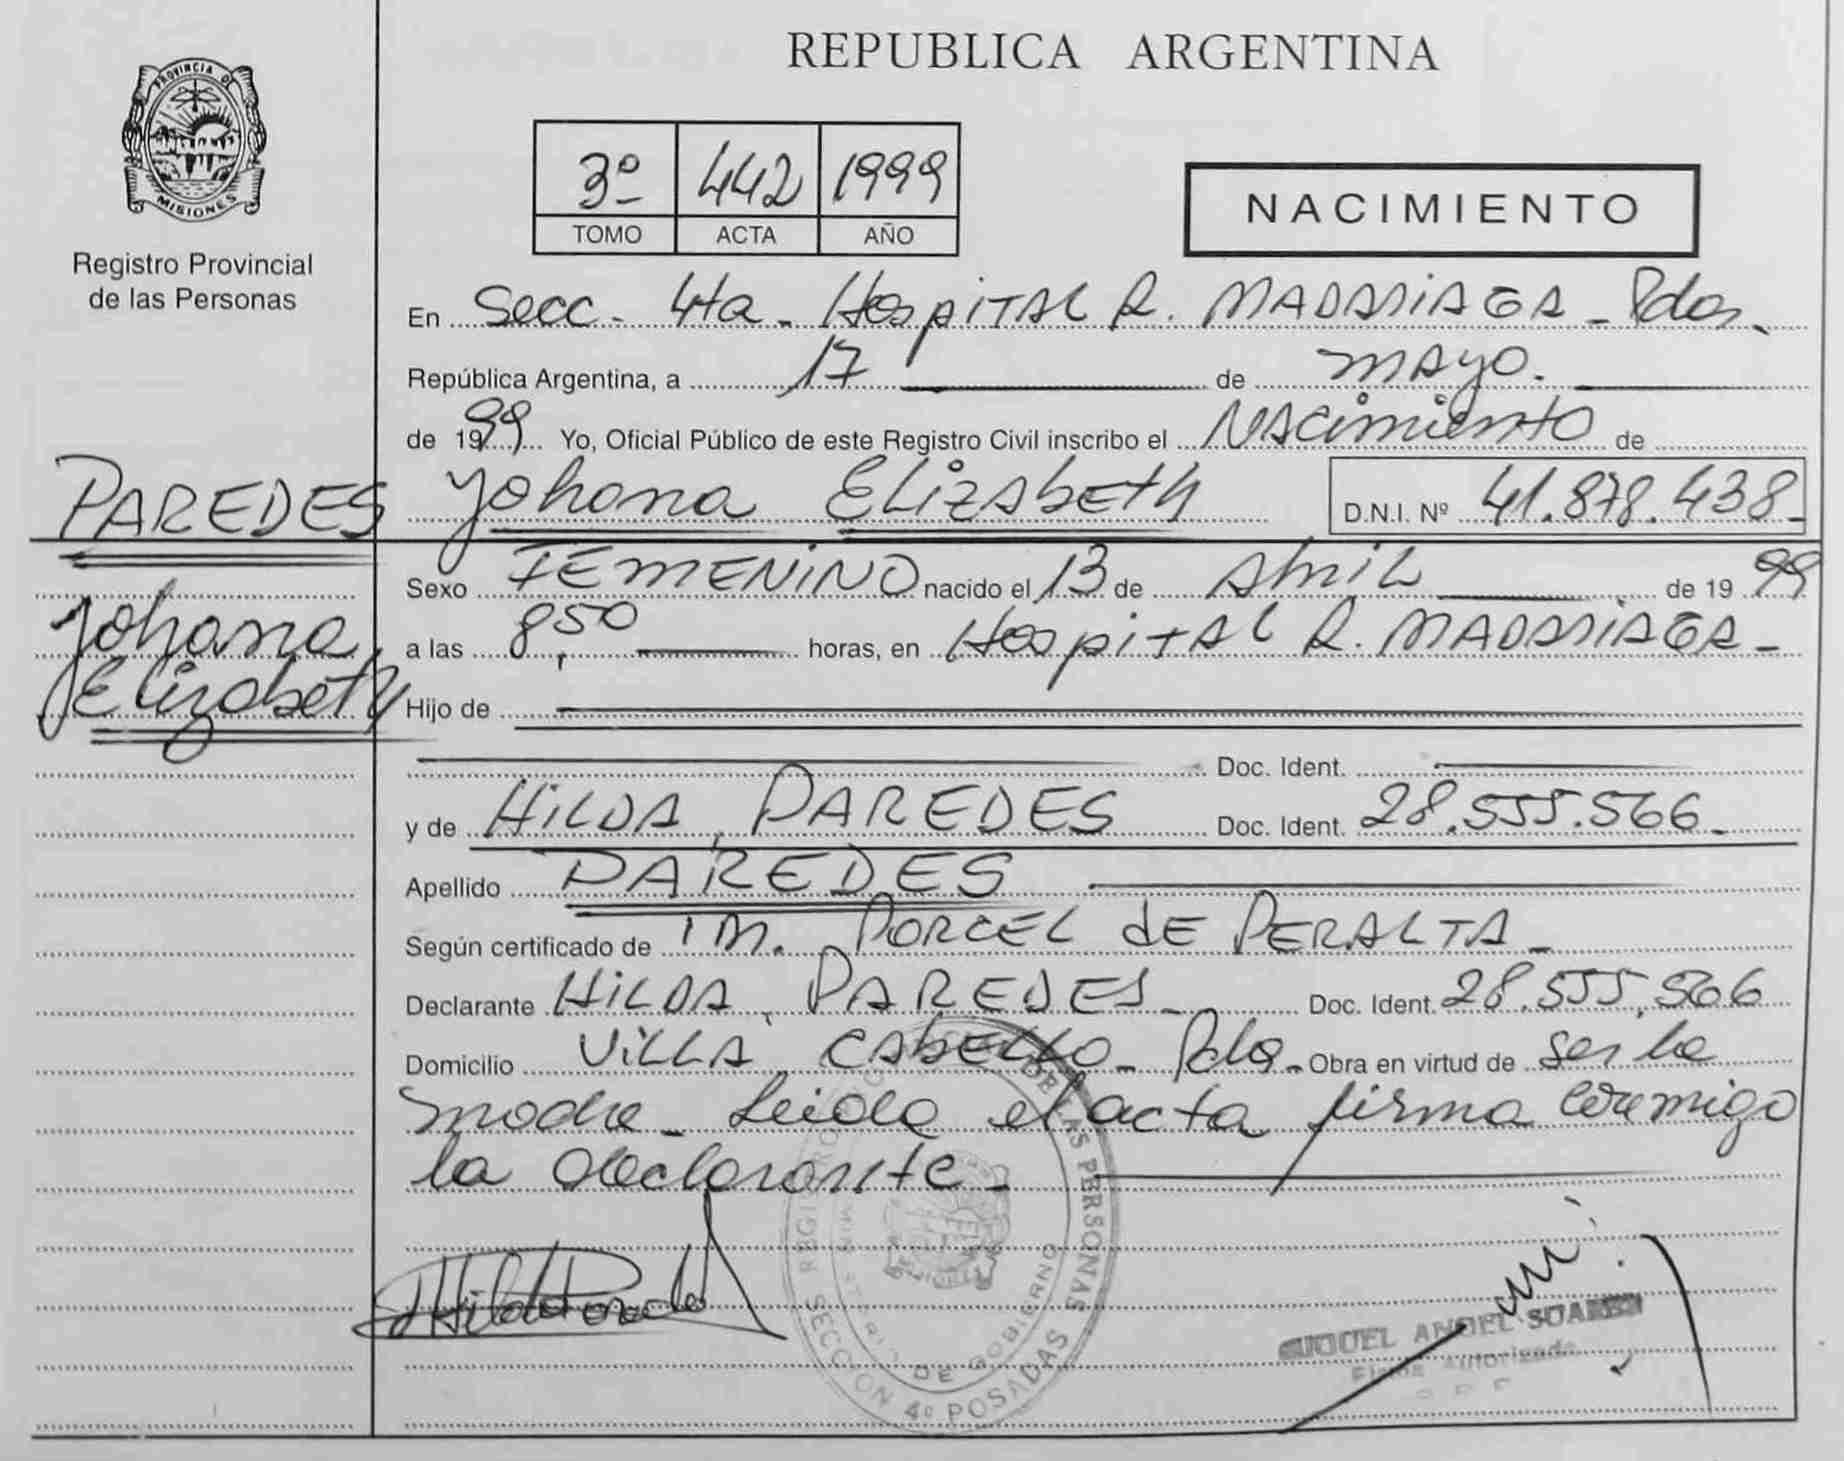 REPUBLICA ARGENTINA
PROVINCIA DE
MISIONES
Registro Provincial
de las Personas
3º 442 1999
TOMO ACTA AÑO
NACIMIENTO
En Secc. 4ta - Hospital R. MADARIAGA - Pdas.
República Argentina, a 17 de mayo.
de 1999 Yo, Oficial Público de este Registro Civil inscribo el Nacimiento de
PAREDES Yohana Elizabeth D.N.I. Nº 41.878.438-
Yohana
Elizabeth
Sexo FEMENINO nacido el 13 de Abril de 1999
a las 8,50 horas, en Hospital R. MADARIAGA -
Hijo de
Doc. Ident.
y de HILDA PAREDES Doc. Ident. 28.555.566-
Apellido PAREDES
Según certificado de M. PORCEL de PERALTA -
Declarante HILDA PAREDES - Doc. Ident. 28.555.566
Domicilio VILLA CABELLO - Pdas - Obra en virtud de ser la
madre - Leida el acta firma conmigo
la declarante -
Hilda Pared
REGISTRO DE LAS PERSONAS
SECCION 4º POSADAS
MINISTERIO DE GOBIERNO
MIGUEL ANGEL SUAREZ
Firma Autorizada